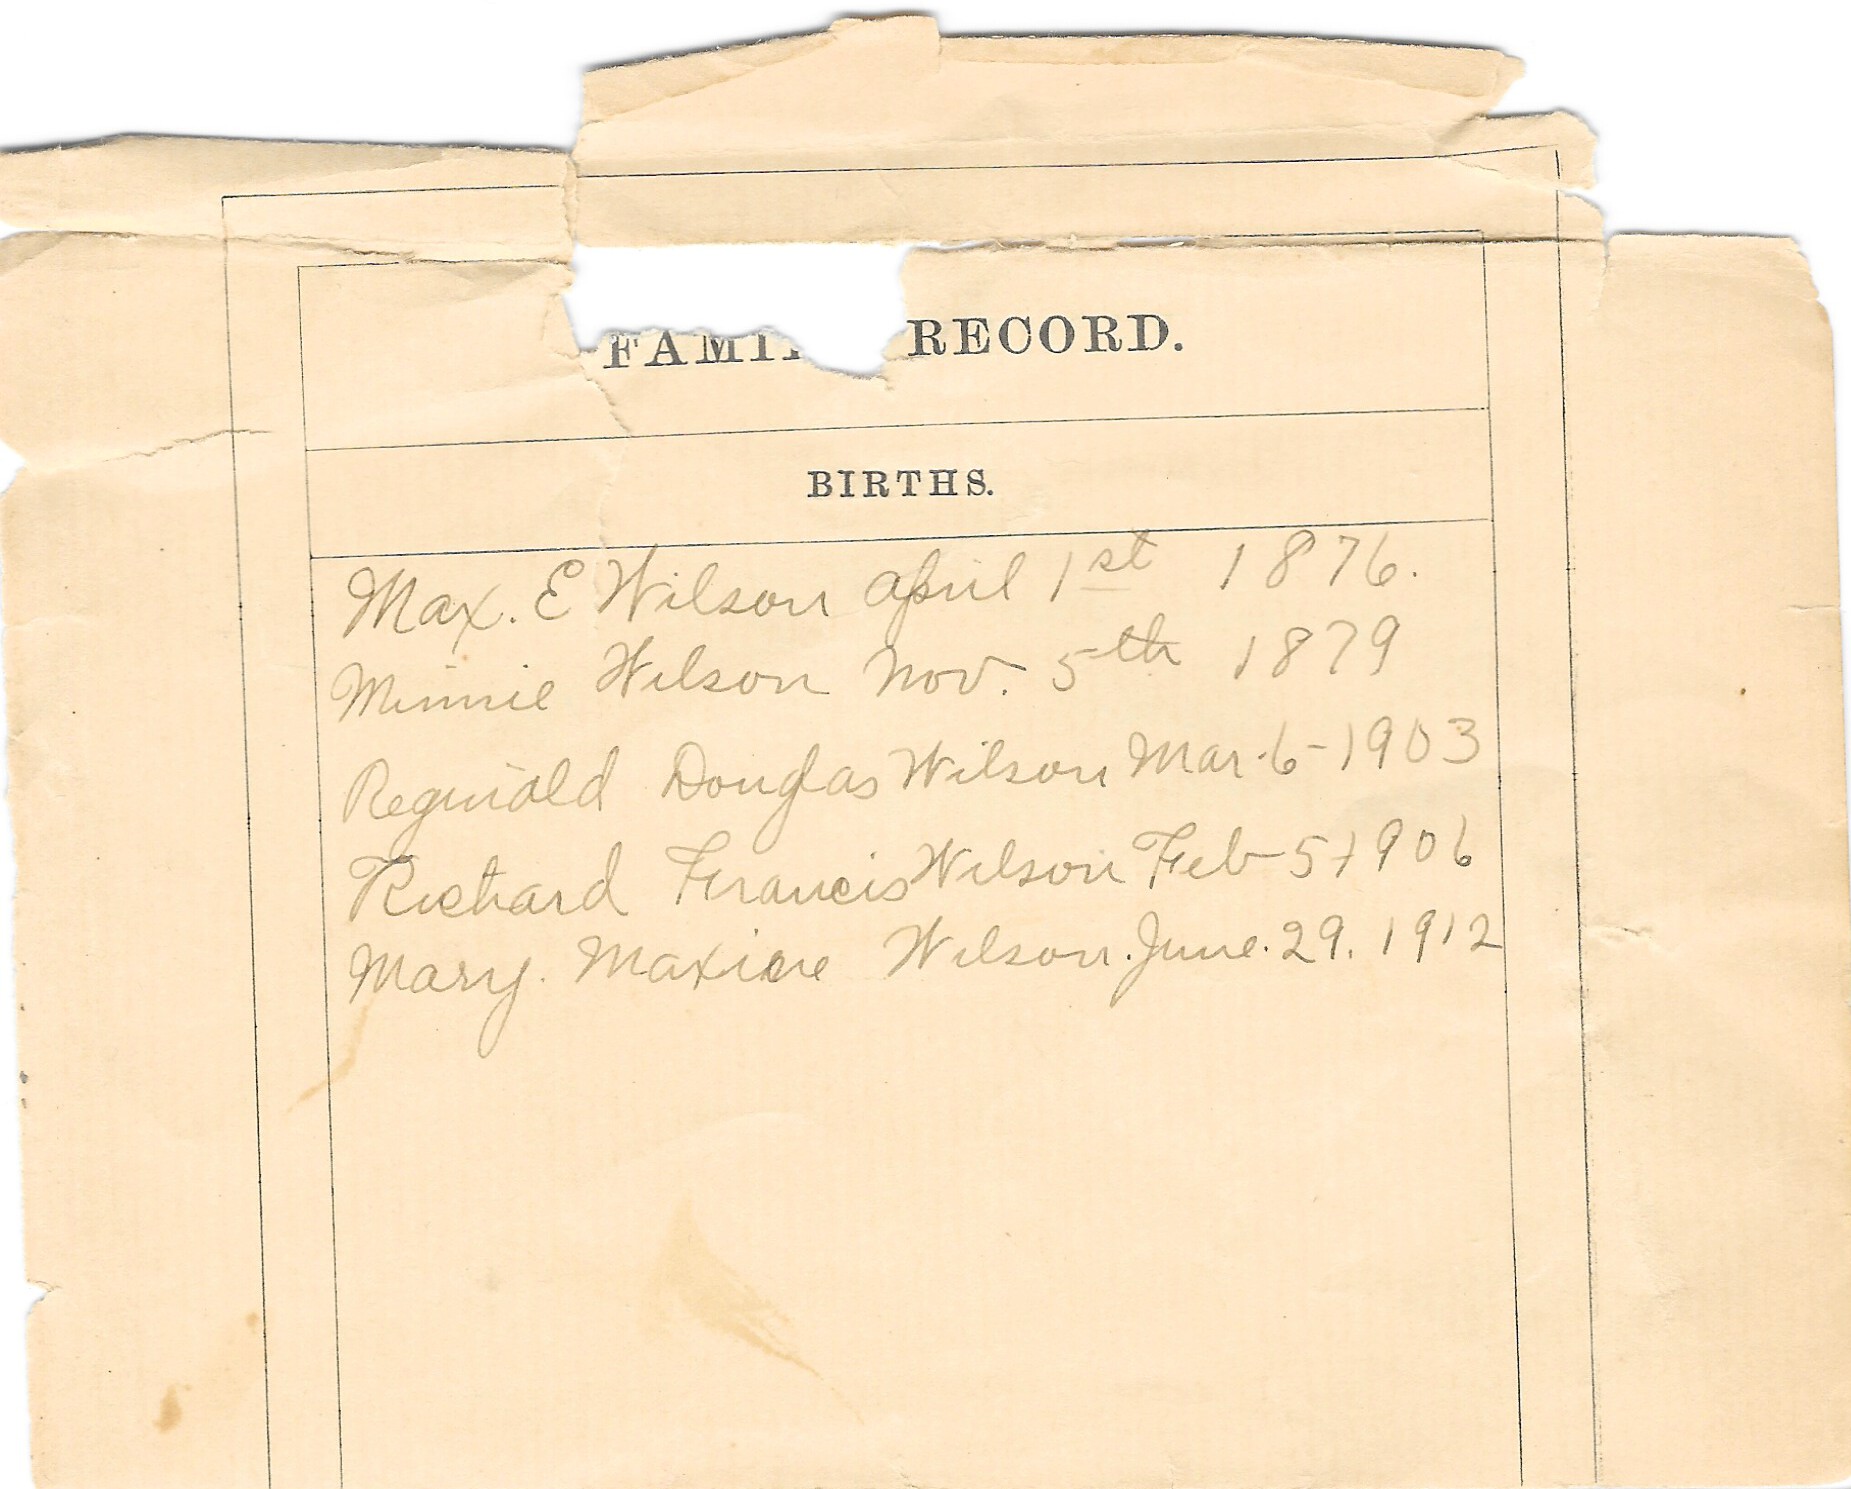 FAMIL RECORD.
BIRTHS.
Max. E Wilson april 1st 1876.
Minnie Wilson Nov. 5th 1879
Reginald Douglas Wilson Mar. 6-1903
Richard Francis Wilson Feb-5-1906
Mary. Maxine Wilson. June. 29. 1912